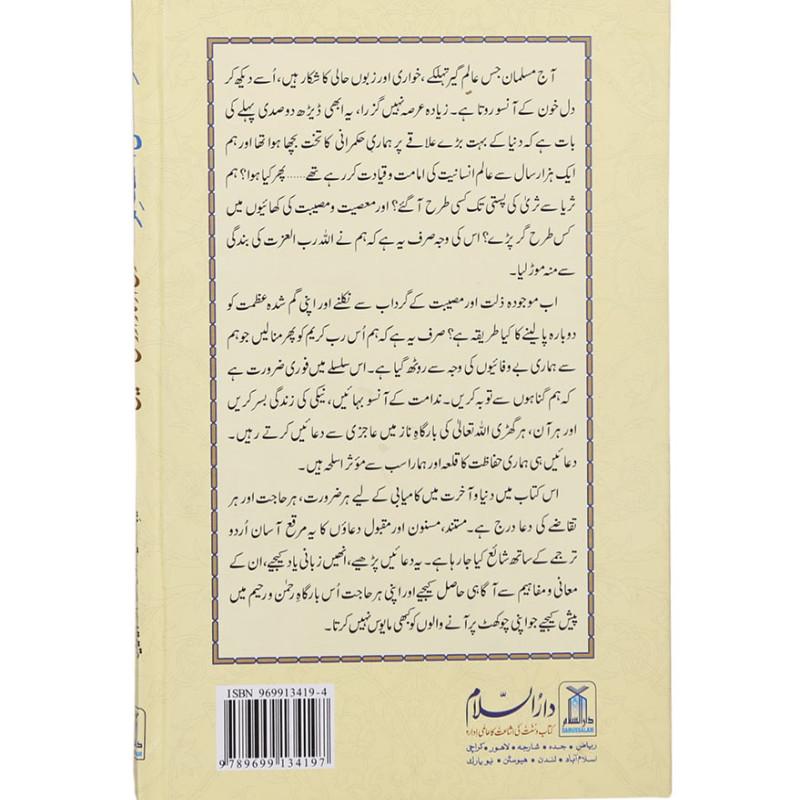 آج مسلمان جس عالم گیر تہلکے، خواری اور زبوں حالی کا شکار ہیں، اُسے دیکھ کر
دل خون کے آنسو روتا ہے۔ زیادہ عرصہ نہیں گزرا، یہ ابھی ڈیڑھ دو صدی پہلے کی
بات ہے کہ دنیا کے بہت بڑے علاقے پر ہماری حکمرانی کا تخت بچھا ہوا تھا اور ہم
ایک ہزار سال سے عالم انسانیت کی امامت و قیادت کر رہے تھے...... پھر کیا ہوا؟ ہم
ثریا سے ثریٰ کی پستی تک کسی طرح آ گئے؟ اور معصیت و مصیبت کی کھائیوں میں
کس طرح گر پڑے؟ اس کی وجہ صرف یہ ہے کہ ہم نے اللہ رب العزت کی بندگی
سے منہ موڑ لیا۔
اب موجودہ ذلت اور مصیبت کے گرداب سے نکلنے اور اپنی گم شدہ عظمت کو
دوبارہ پا لینے کا کیا طریقہ ہے؟ صرف یہ ہے کہ ہم اُس رب کریم کو پھر منا لیں جو ہم
سے ہماری بے وفائیوں کی وجہ سے روٹھ گیا ہے۔ اس سلسلے میں فوری ضرورت ہے
کہ ہم گناہوں سے توبہ کریں۔ ندامت کے آنسو بہائیں، نیکی کی زندگی بسر کریں
اور ہر آن، ہر گھڑی اللہ تعالیٰ کی بارگاہِ ناز میں عاجزی سے دعائیں کرتے رہیں۔
دعائیں ہی ہماری حفاظت کا قلعہ اور ہمارا سب سے مؤثر اسلحہ ہیں۔
اس کتاب میں دنیا و آخرت میں کامیابی کے لیے ہر ضرورت، ہر حاجت اور ہر
تقاضے کی دعا درج ہے۔ مستند، مسنون اور مقبول دعاؤں کا یہ مرقع آسان اُردو
ترجمے کے ساتھ شائع کیا جا رہا ہے۔ یہ دعائیں پڑھیے، انھیں زبانی یاد کیجیے، ان کے
معانی و مفاہیم سے آگاہی حاصل کیجیے اور اپنی ہر حاجت اُس بارگاہِ رحمٰن و رحیم میں
پیش کیجیے جو اپنی چوکھٹ پر آنے والوں کو کبھی مایوس نہیں کرتا۔
ISBN 969913419-4
9789699134197
دارالسلام
کتاب و سنت کی اشاعت کا عالمی ادارہ
ریاض • جدہ • شارجہ • لاہور • کراچی
اسلام آباد • لندن • ہیوسٹن • نیویارک
دارالسلام
DARUSSALAM